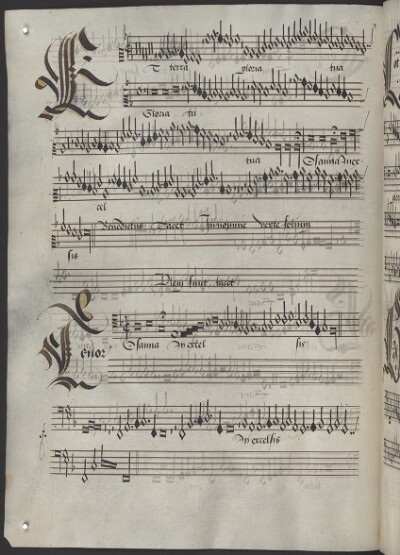 Et terra gloria tua
Gloria tu
tua Osanna In ex
cel
sis Benedictus Tacet Verte folium
Pleni sunt tacet
Tenor Osanna In excel sis
In excelsis